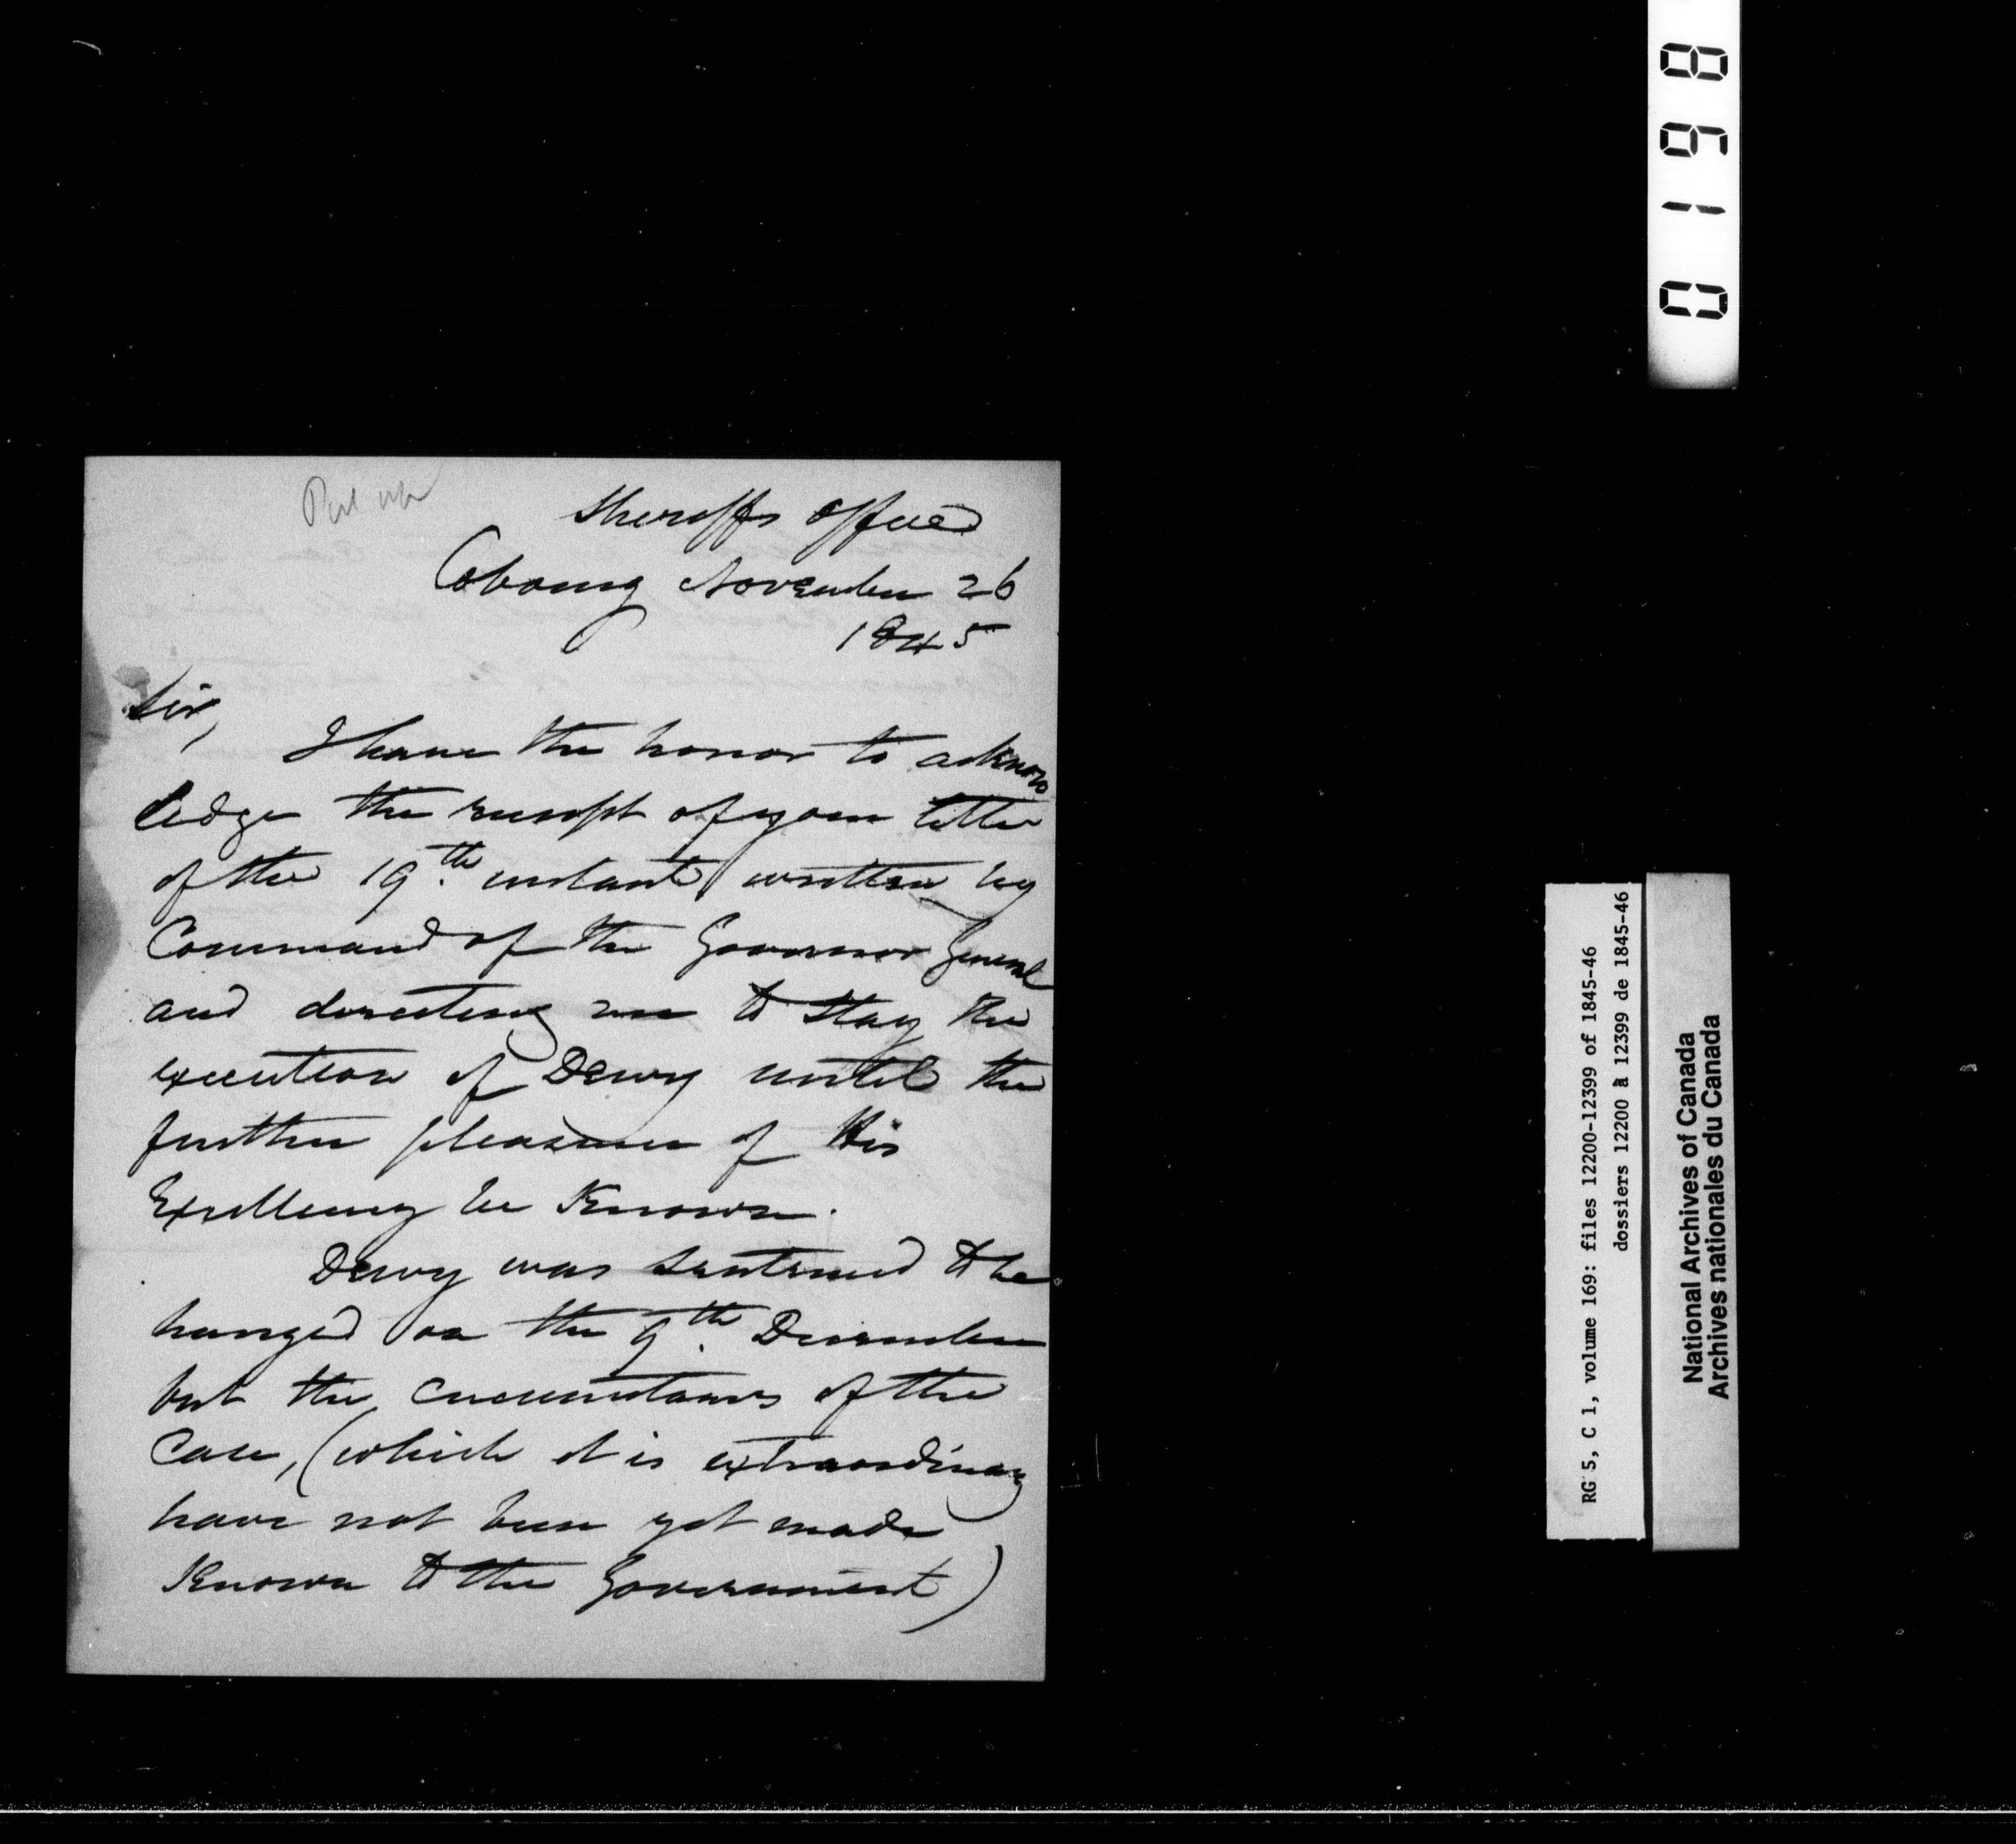 Put up
Sheriffs Office
Cobourg November 26
1845
Sir,
I have the honor to acknow
ledge the receipt of your letter
of the 19.th instant written by
Command of the Governor General
and directing me to stay the
execution of Dewy until the
further pleasure of His
Excellency be Known.
Dewy was sentenced to be
hanged on the 9.th December
but the circumstances of the
Case, (which it is extraordinary
have not been yet made
Known to the Government)
0198
RG 5, C 1, volume 169: files 12200-12399 of 1845-46
dossiers 12200 à 12399 de 1845-46
National Archives of Canada
Archives nationales du Canada